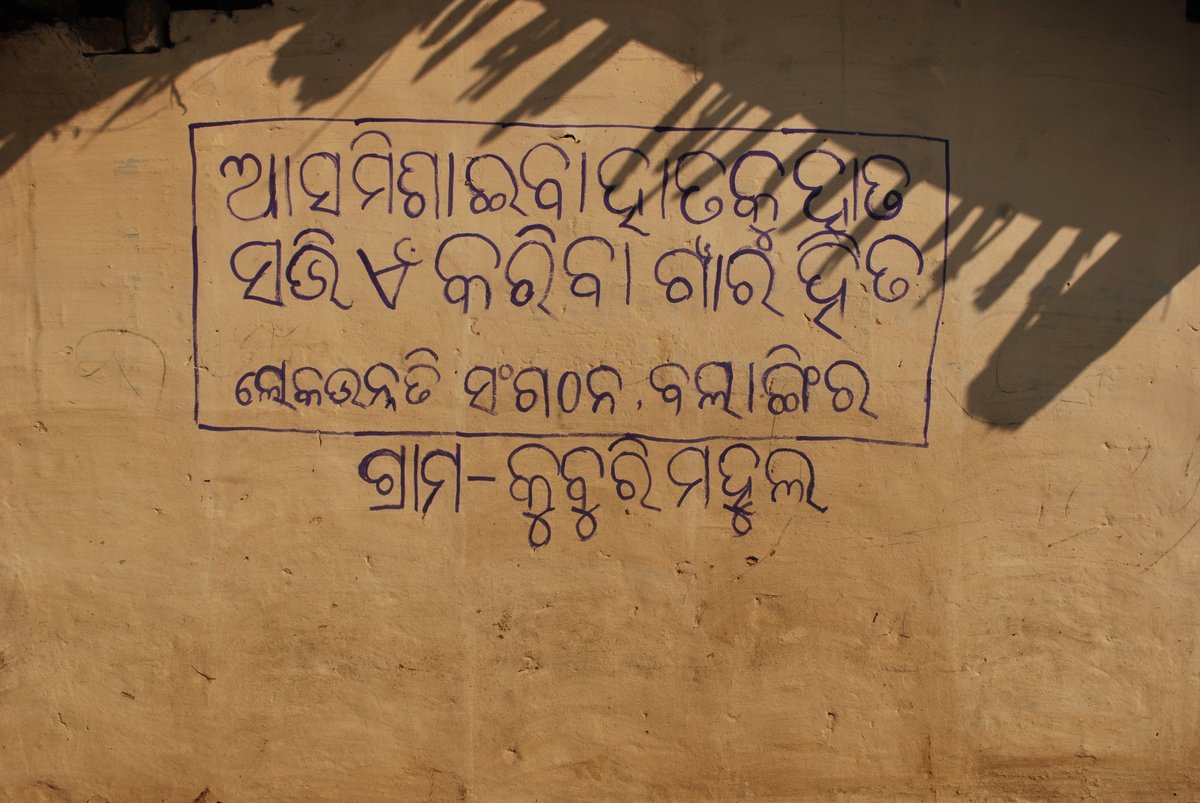 ଆସ ମିଶାଇବା ହାତକୁ ହାତ
ସଭିଏଁ କରିବା ଗାଁର ହିତ
ଲେକଉନ୍ନତି ସଂଗଠନ, ବଲାଙ୍ଗିର
ଗ୍ରାମ - କୁବୁରି ମହୁଲ